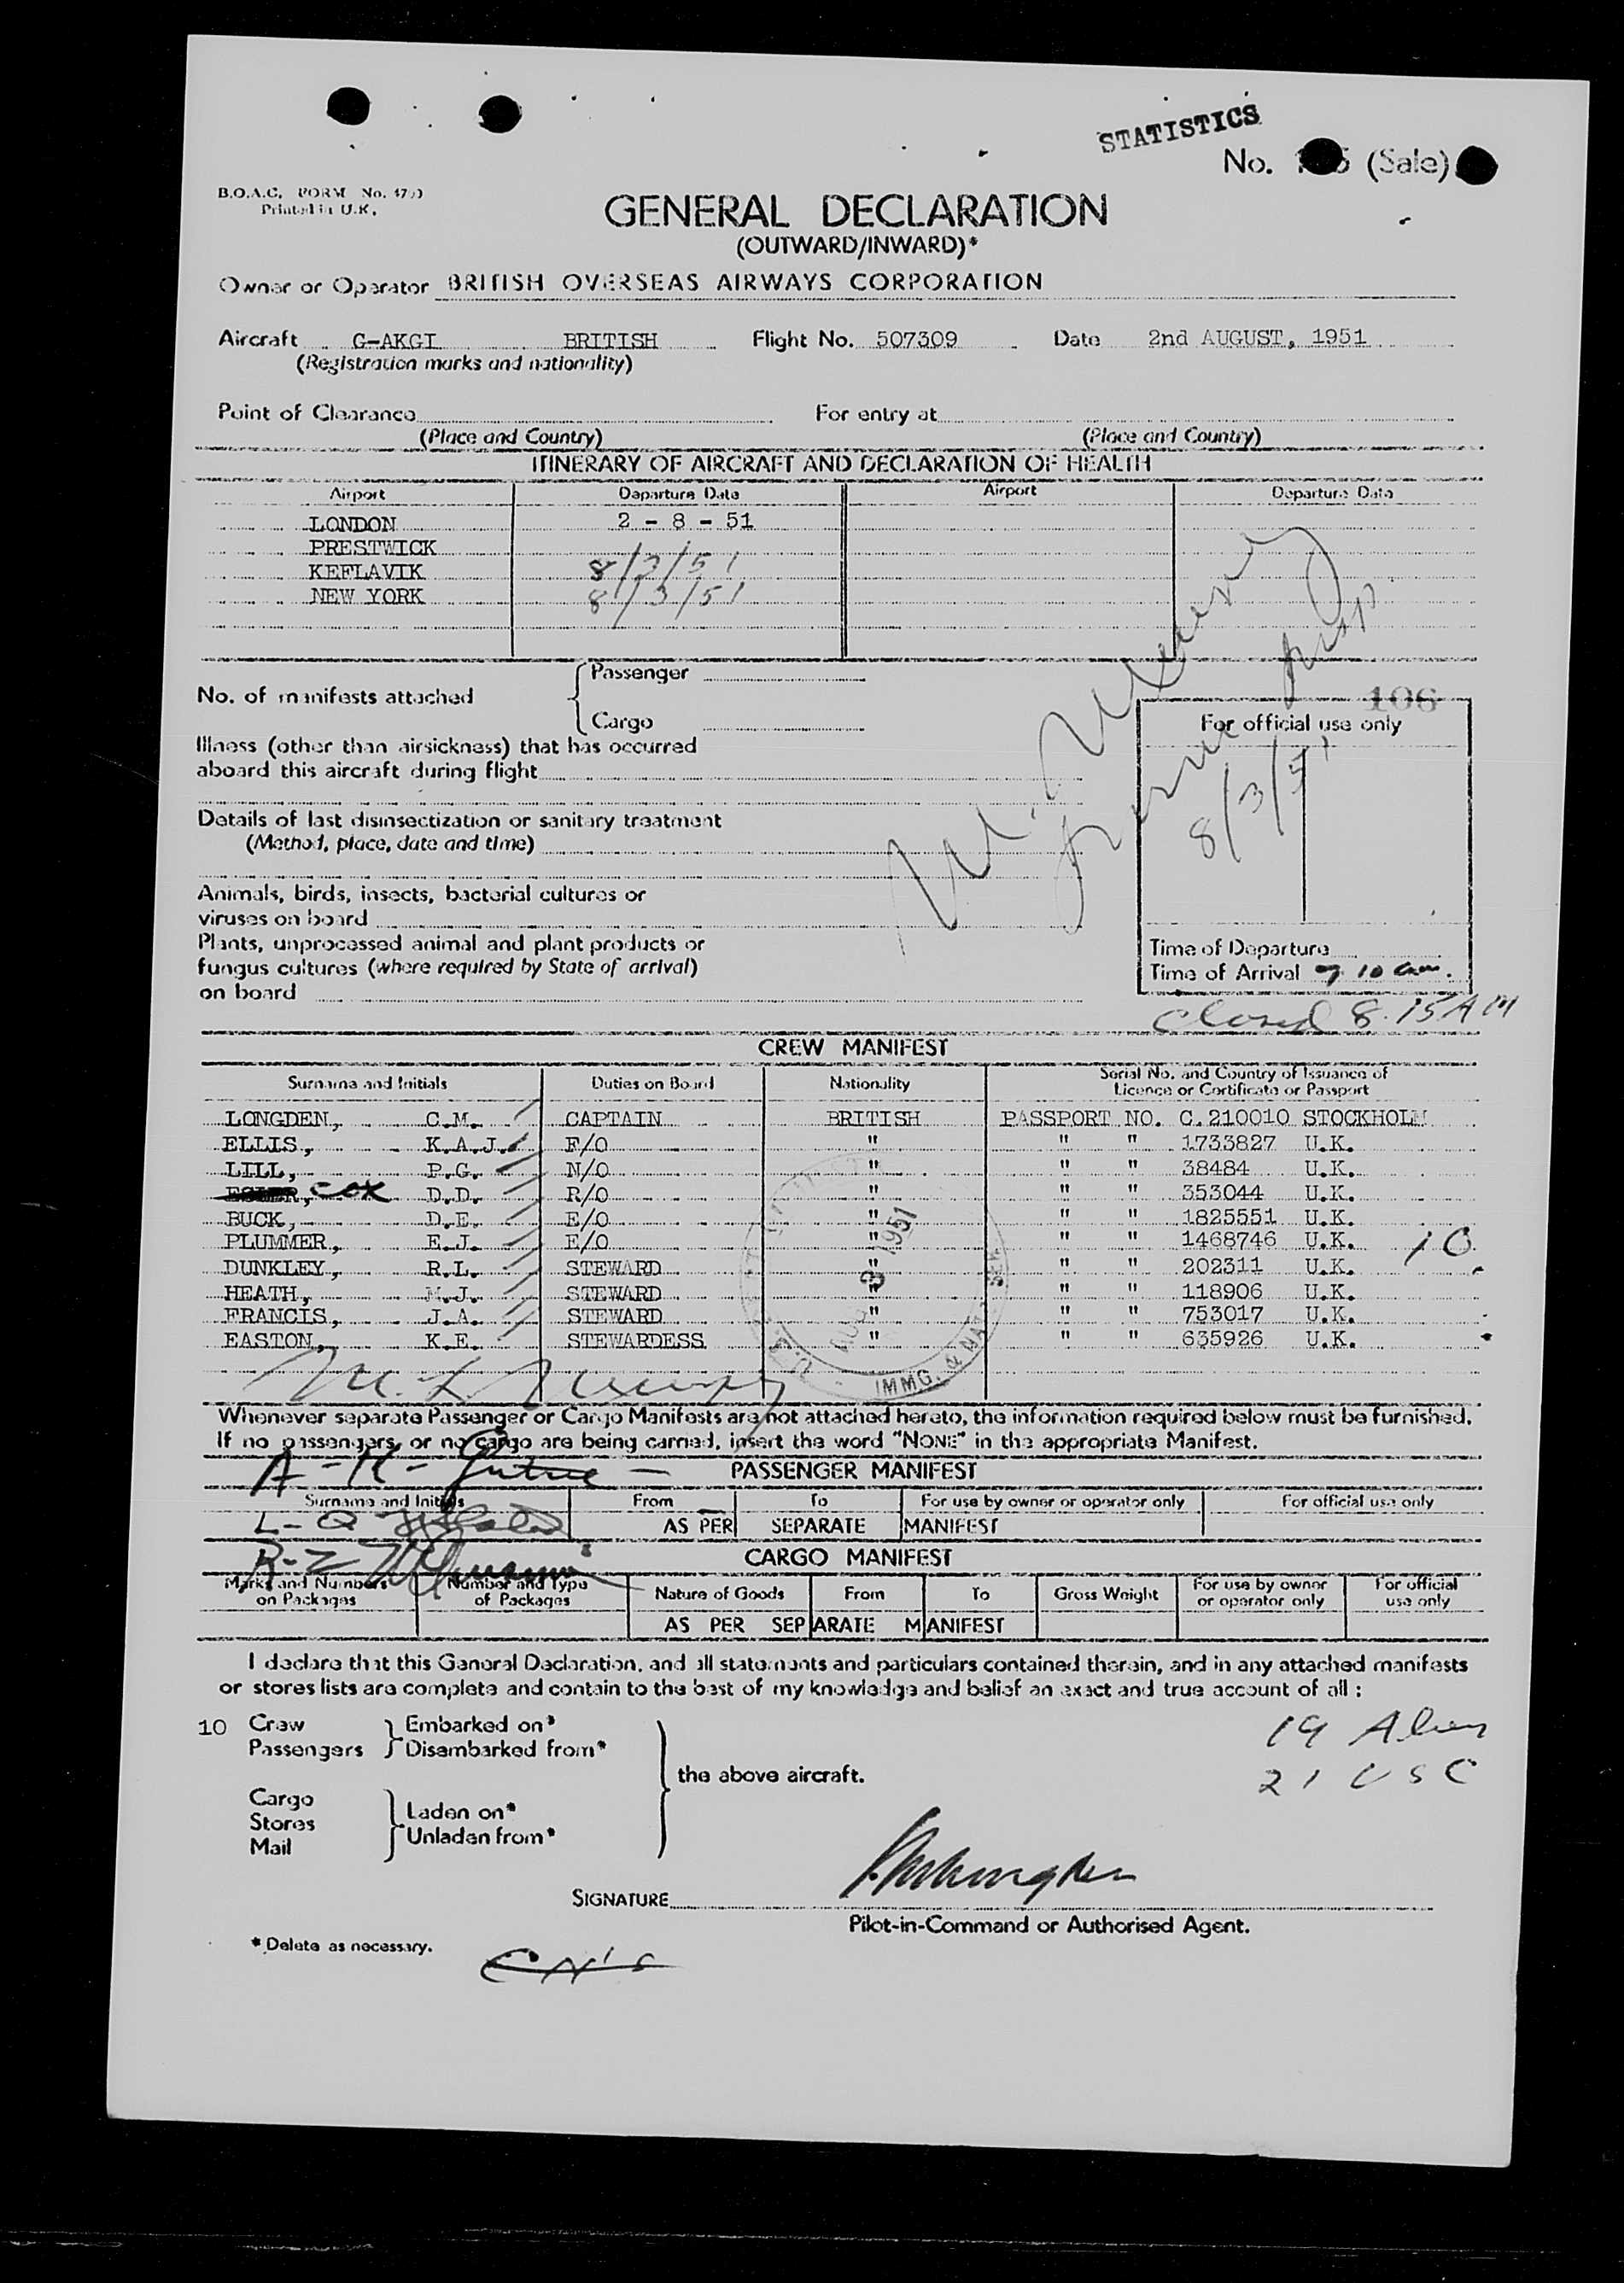 STATISTICS
No. (Sale)
B.O.A.C. FORM No.
Printed in U.K.
GENERAL DECLARATION
(OUTWARD/INWARD)*
Owner or Operator BRITISH OVERSEAS AIRWAYS CORPORATION
Aircraft G-AKGI BRITISH Flight No. 507309 Date 2nd AUGUST, 1951
(Registration marks and nationality)
Point of Clearance For entry at
(Place and Country) (Place and Country)
ITINERARY OF AIRCRAFT AND DECLARATION OF HEALTH
Airport Departure Date Airport Departure Date
LONDON 2 - 8 - 51
PRESTWICK
KEFLAVIK 8/3/51
NEW YORK 8/3/51
Passenger
No. of manifests attached
106
Cargo
For official use only
Illness (other than airsickness) that has occurred
aboard this aircraft during flight
8/3/51
Details of last disinsectization or sanitary treatment
(Method, place, date and time)
Animals, birds, insects, bacterial cultures or
viruses on board
Plants, unprocessed animal and plant products or
fungus cultures (where required by State of arrival)
on board
Time of Departure
Time of Arrival 7 10 am.
closed 8.15 AM
CREW MANIFEST
Surname and Initials Duties on Board Nationality Serial No. and Country of Issuance of
Licence or Certificate or Passport
LONGDEN, C.M. CAPTAIN BRITISH PASSPORT NO. C.210010 STOCKHOLM
ELLIS, K.A.J. F/O " " " 1733827 U.K.
LILL, P.G. N/O " " " 38484 U.K.
COX D.D. R/O " " " 353044 U.K.
BUCK, D.E. E/O " " " 1825551 U.K.
PLUMMER, E.J. E/O " " " 1468746 U.K. 10
DUNKLEY, R.L. STEWARD " " " 202311 U.K.
HEATH, M.J. STEWARD " " " 118906 U.K.
FRANCIS, J.A. STEWARD " " " 753017 U.K.
EASTON, K.E. STEWARDESS " " " 635926 U.K.
AUG 3 1951
IMMG. & NAT. SER.
Whenever separate Passenger or Cargo Manifests are not attached hereto, the information required below must be furnished.
If no passengers, or no cargo are being carried, insert the word "NONE" in the appropriate Manifest.
A-K-
PASSENGER MANIFEST
Surname and Initials From To For use by owner or operator only For official use only
L-Q
AS PER SEPARATE MANIFEST
R-Z
CARGO MANIFEST
Marks and Numbers on Packages Number and Type of Packages Nature of Goods From To Gross Weight For use by owner or operator only For official use only
AS PER SEPARATE MANIFEST
I declare that this General Declaration, and all statements and particulars contained therein, and in any attached manifests
or stores lists are complete and contain to the best of my knowledge and belief an exact and true account of all :
10 Crew Embarked on*
Passengers Disembarked from*
19 Alien
the above aircraft.
21 USC
Cargo
Stores Laden on*
Mail Unladen from*
SIGNATURE
Pilot-in-Command or Authorised Agent.
* Delete as necessary.